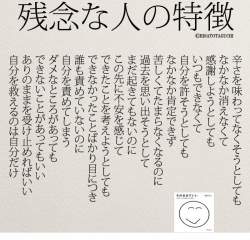 残念な人の特徴
©HISATOTAGUCHI
辛さを味わってなくそうとしても
なかなか消えなくて
感謝しようとしても
いつもできなくて
自分を許そうとしても
なかなか肯定できず
苦しくてたまらなくなるのに
過去を思い出そうとして
まだ起きてもないのに
この先に不安を感じて
できたことを考えようとしても
できなかったことばかり目につき
誰も責めていないのに
自分を責めてしまう
ダメなところがあっても
できないことがあってもいい
ありのままを受け止めればいい
自分を救えるのは自分だけ